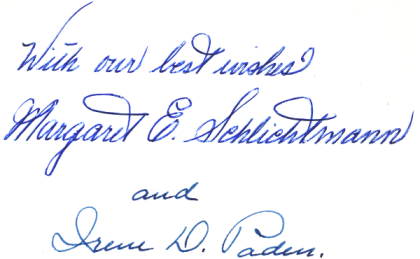 With our best wishes
Margaret E. Schlichtmann
and
Irene D. Paden.